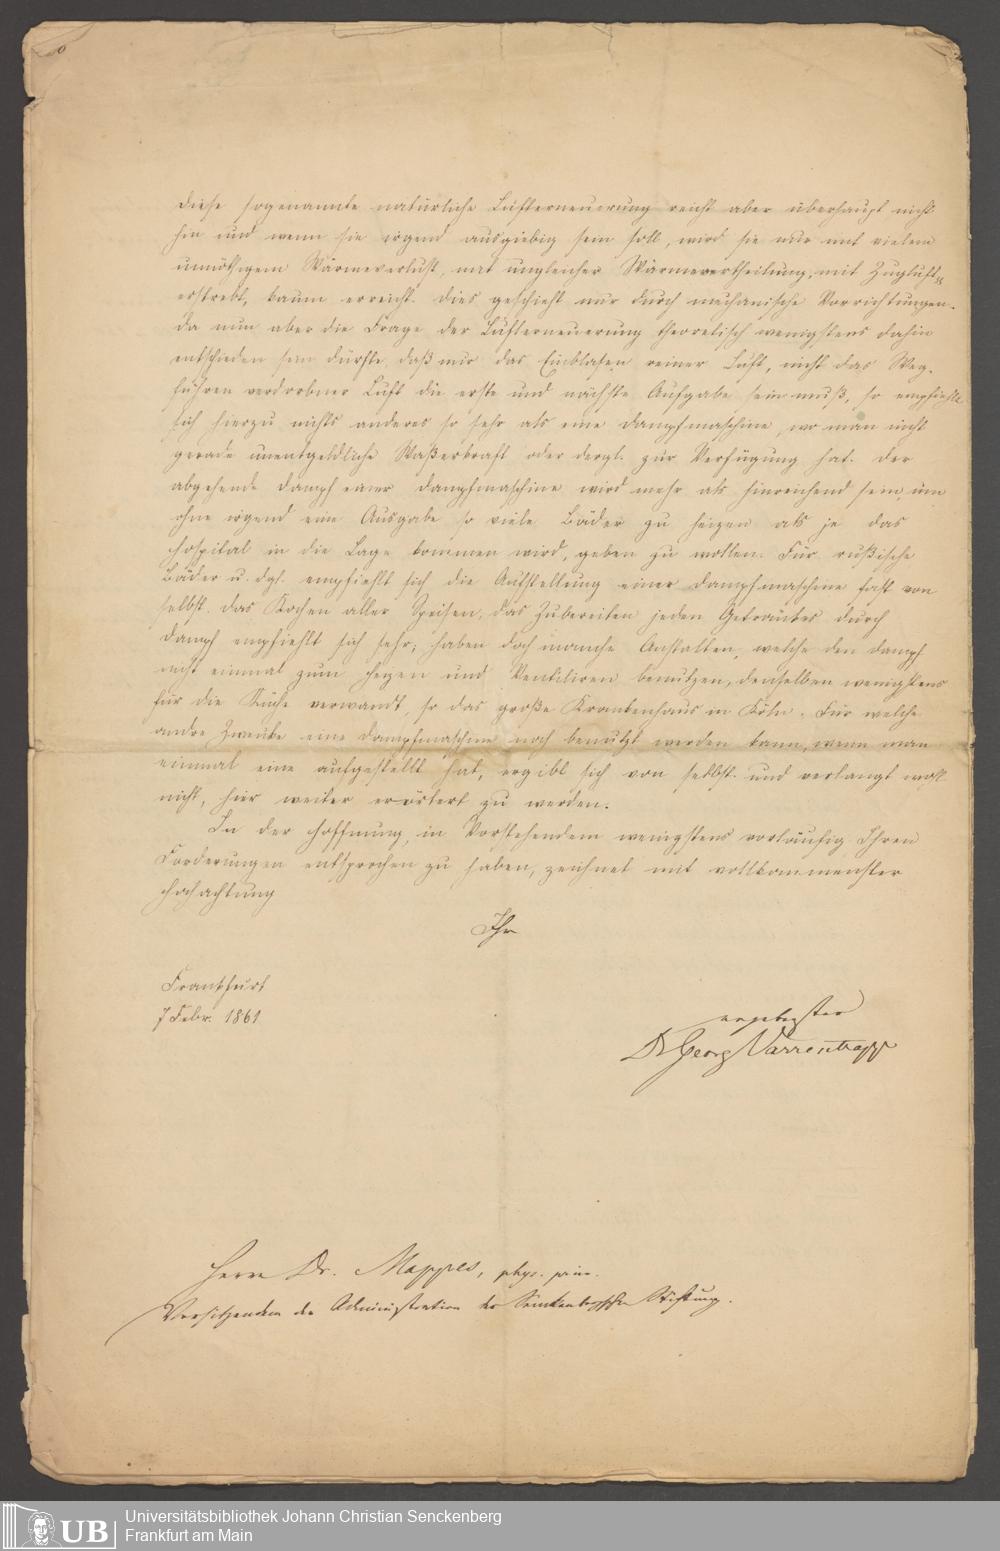 Diese sogenannte natürliche Lufterneuerung reicht aber überhaupt nicht
hin und wenn sie irgend ausgiebig sein soll, wird sie nur mit vielem
unnöthigem Wärmeverlust, mit ungleicher Wärmevertheilung, mit Zugluft
erstrebt, kaum erreicht. Dies geschieht nur durch mechanische Vorrichtungen.
Da nun aber die Frage der Lufterneuerung theoretisch wenigstens dahin
entschieden sein dürfte, daß nur das Einblasen reiner Luft, nicht das Weg-
führen verdorbner Luft die erste und nächste Aufgabe sein muß, so empfiehlt
sich hierzu nichts anderes so sehr als eine Dampfmaschine, wo man nicht
gerade unentgeldliche Waßerkraft oder dergl. zur Verfügung hat. Der
abgehende Dampf einer Dampfmaschine wird mehr als hinreichend sein, um
ohne irgend eine Ausgabe so viele Bäder zu heizen als je das
Hospital in die Lage kommen wird, geben zu wollen. Für rußische
Bäder u. dgl. empfiehlt sich die Aufstellung einer Dampfmaschine fast von
selbst. Das Kochen aller Speisen, das Zubereiten jeden Getränkes durch
Dampf empfiehlt sich sehr; haben doch manche Anstalten, welche den Dampf
nicht einmal zum Heizen und Ventiliren benutzen, denselben wenigstens
für die Küche verwandt, so das große Krankenhaus in Köln. Für welche
andre Zwecke eine Dampfmaschine noch benutzt werden kann, wenn man
einmal eine aufgestellt hat, ergibt sich von selbst und verlangt wohl
nicht, hier weiter erörtert zu werden.
In der Hoffnung, in Vorstehendem wenigstens vorläufig Ihren
Forderungen entsprochen zu haben, zeichnet mit vollkommenster
Hochachtung
Ihr
Frankfurt
7 Febr. 1861
ergebenster
Dr Georg Varrentrapp
Herrn Dr. Mappes, phys. prim.
Vorsitzenden der Administration der Senckenbergischen Stiftung.
UB
Universitätsbibliothek Johann Christian Senckenberg
Frankfurt am Main